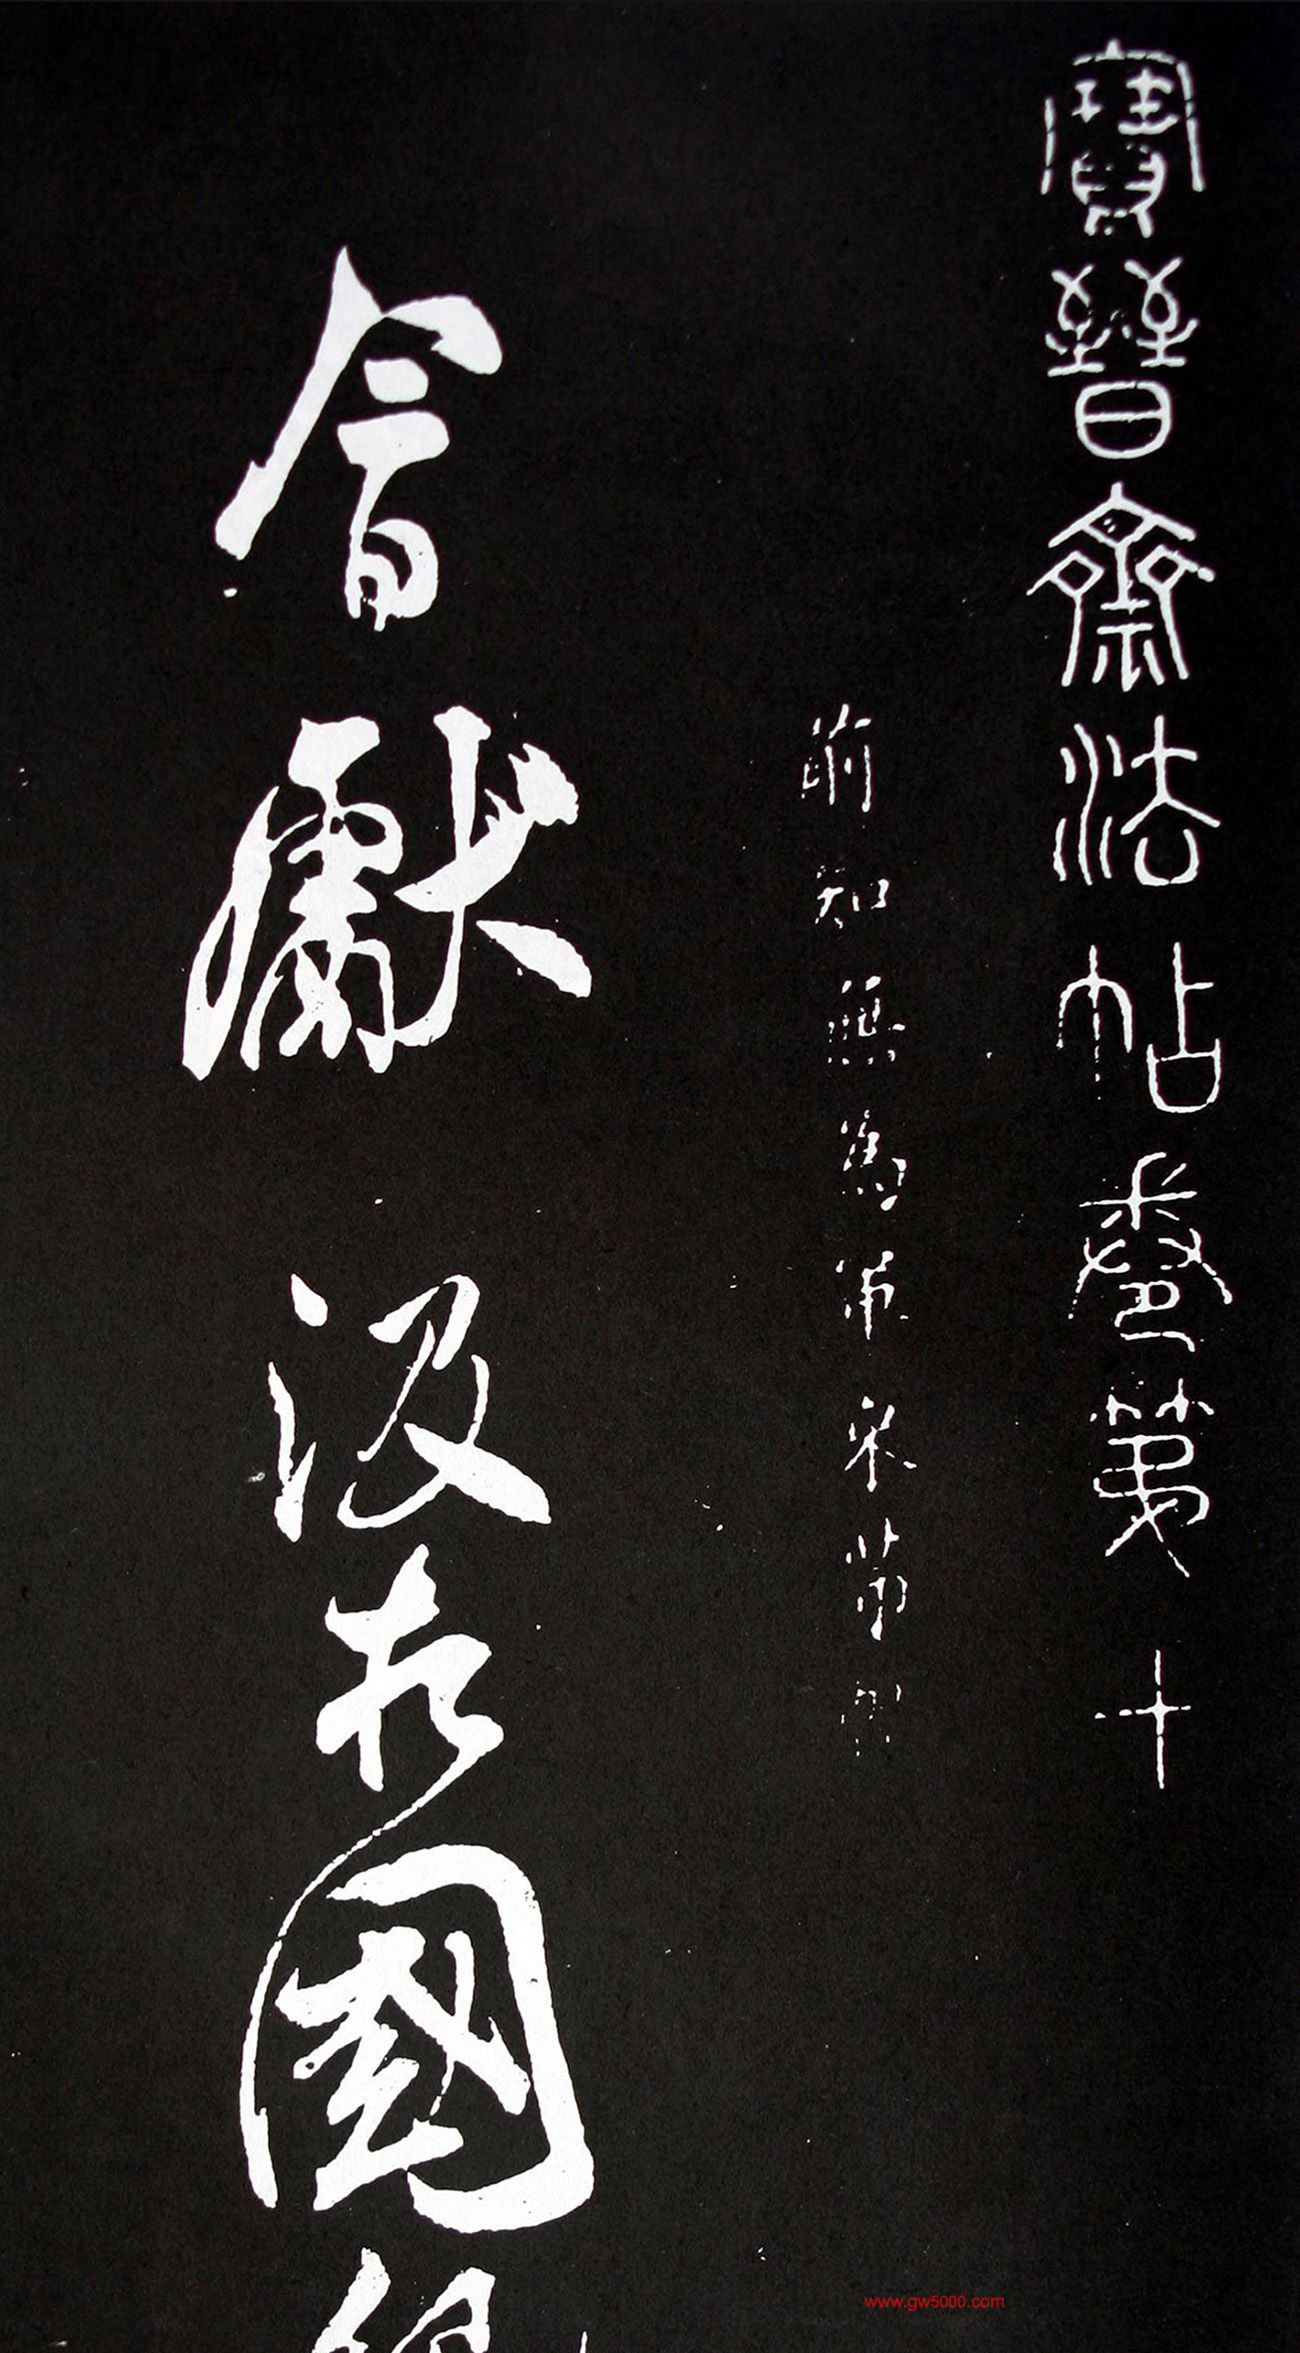 寶晉齋法帖卷第十
前知無為軍米芾
獻汲
國
www.gw5000.com